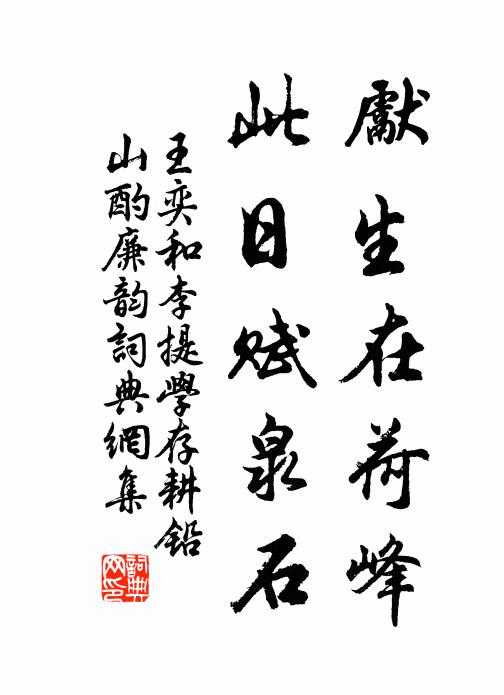 獻生在荷峰
此日賦泉石
王奕和李提學存耕鉛
山酌廉韵詞典網集
詞典
网印